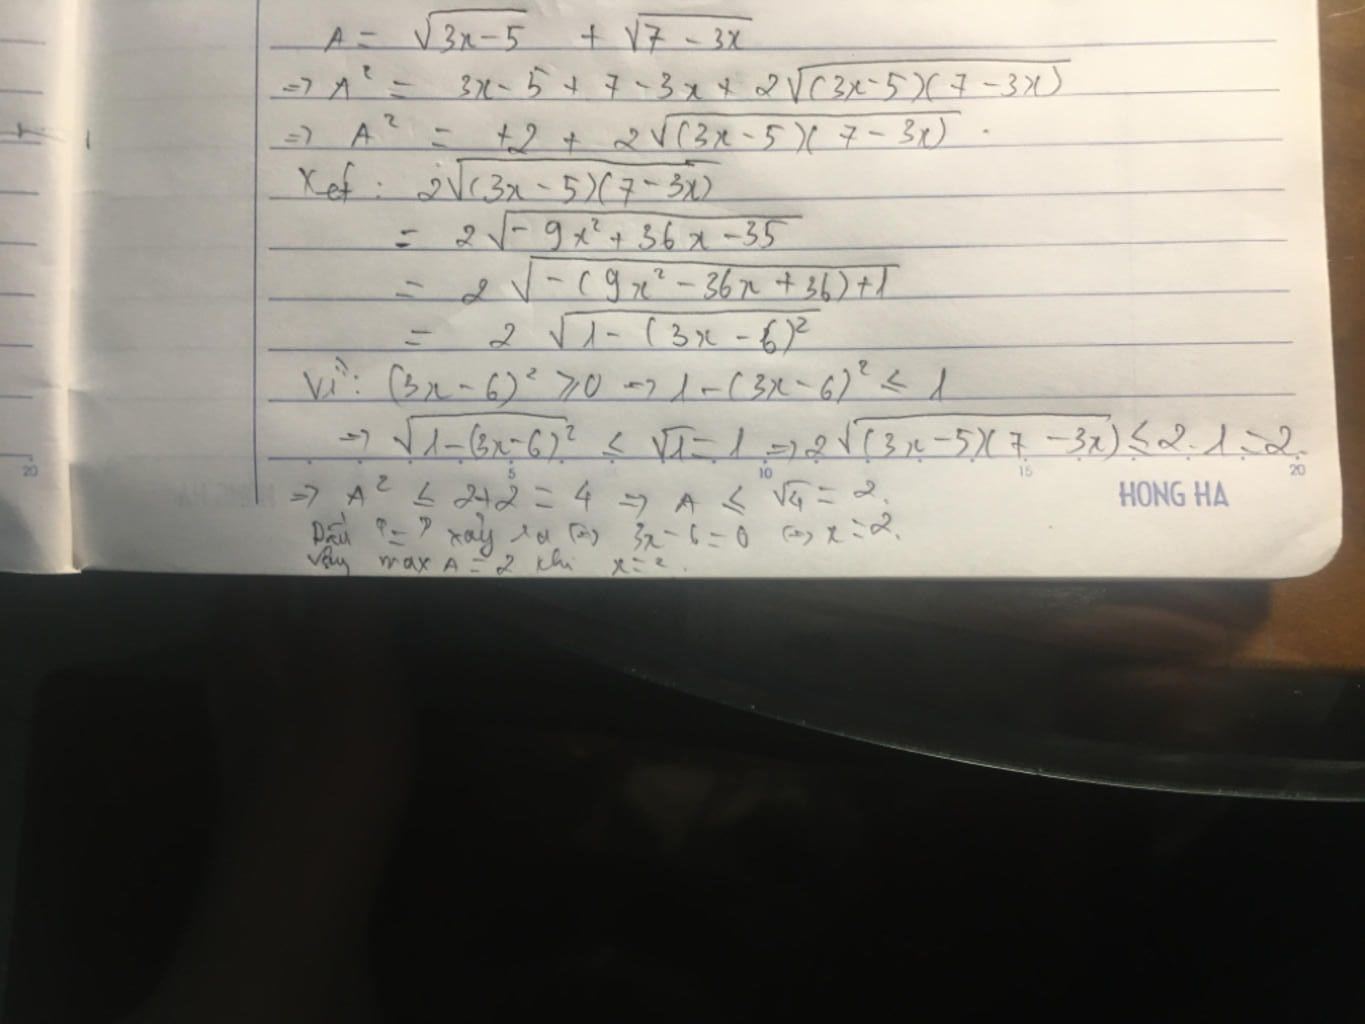 A = √(3x-5) + √(7-3x)
=> A² = 3x-5 + 7-3x + 2√((3x-5)(7-3x))
=> A² = +2 + 2√((3x-5)(7-3x)) .
Xét: 2√((3x-5)(7-3x))
= 2√(-9x²+36x-35)
= 2√(-(9x²-36x+36)+1)
= 2√(1-(3x-6)²)
Vì: (3x-6)² ≥0 => 1-(3x-6)² ≤ 1
=> √(1-(3x-6)²) ≤ √1=1 => 2√((3x-5)(7-3x)) ≤ 2.1=2.
20 5 10 15 20
=> A² ≤ 2+2 = 4 => A ≤ √4 = 2.
HONG HA
Dấu "=" xảy ra <=> 3x-6=0 <=> x=2.
Vậy max A = 2 khi x=2.